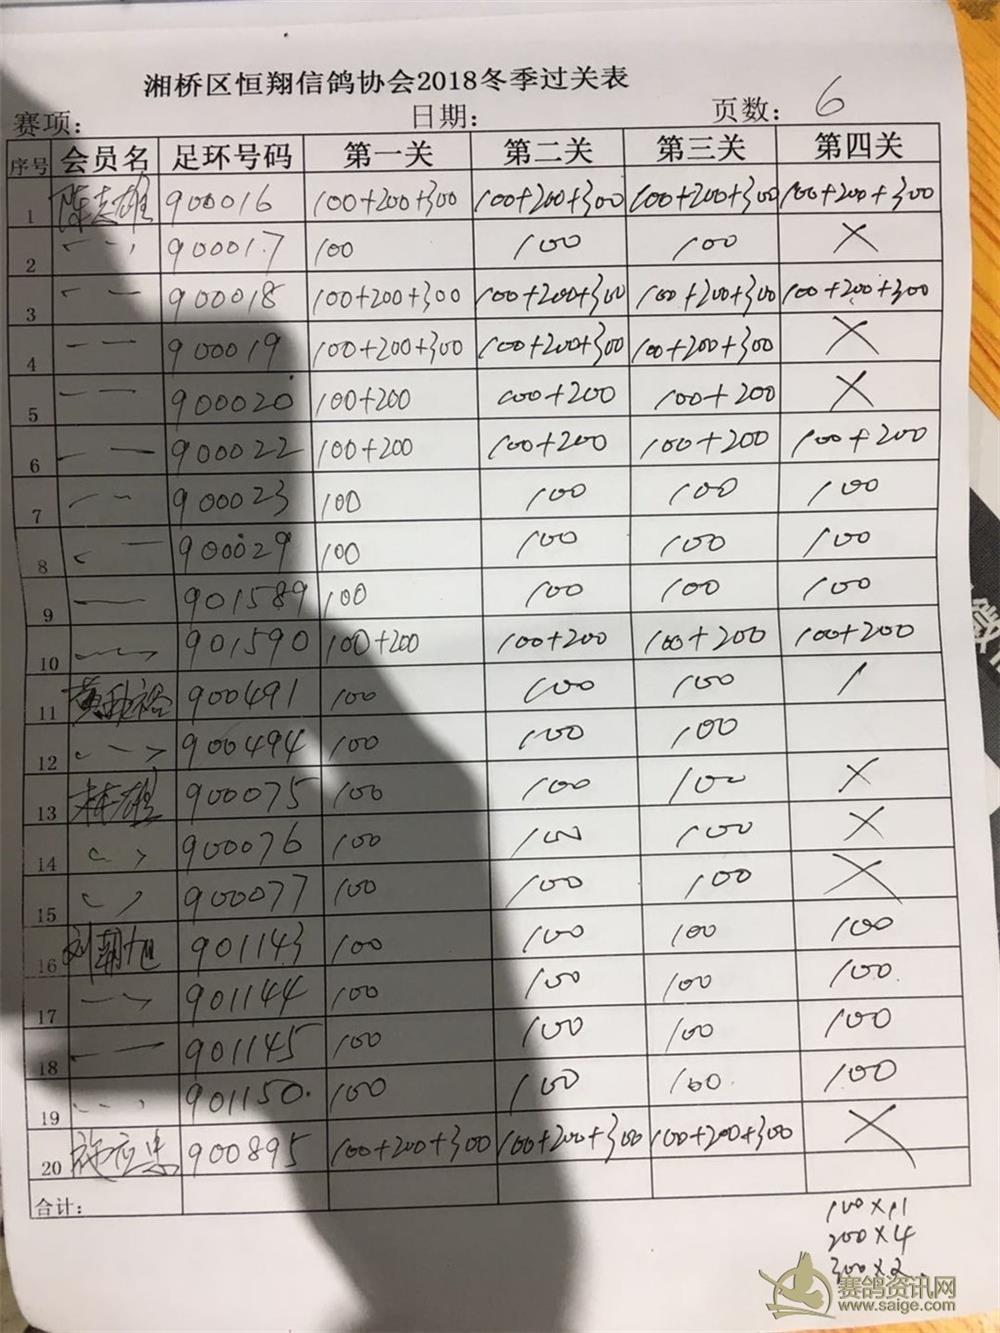 湘桥区恒翔信鸽协会2018冬季过关表
赛项： 日期： 页数： 6
序号 会员名 足环号码 第一关 第二关 第三关 第四关
1 陈志雄 900016 100+200+300 100+200+300 100+200+300 100+200+300
2 900017 100 100 100 ×
3 900018 100+200+300 100+200+300 100+200+300 100+200+300
4 900019 100+200+300 100+200+300 100+200+300 ×
5 900020 100+200 100+200 100+200 ×
6 900022 100+200 100+200 100+200 100+200
7 900023 100 100 100 100
8 900029 100 100 100 100
9 901589 100 100 100 100
10 901590 100+200 100+200 100+200 100+200
11 900491 100 100 100 1
12 900494 100 100 100
13 900075 100 100 100 ×
14 900076 100 100 100 ×
15 900077 100 100 100 ×
16 刘朝旭 901143 100 100 100 100
17 901144 100 100 100 100
18 901145 100 100 100 100
19 901150 100 100 100 100
20 900895 100+200+300 100+200+300 100+200+300 ×
合计：
100×11
200×4
300×2
赛鸽资讯网
www.saige.com